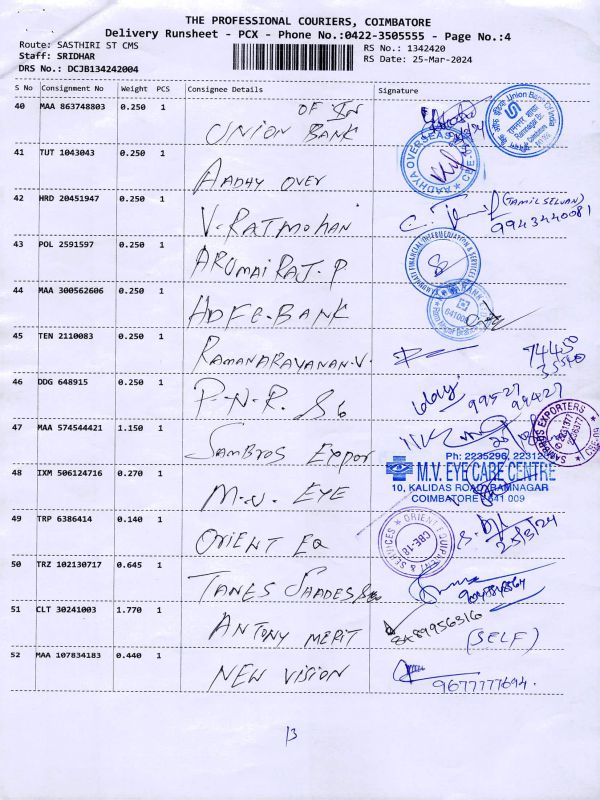 THE PROFESSIONAL COURIERS, COIMBATORE
Delivery Runsheet - PCX - Phone No.:0422-3505555 - Page No.:4
Route: SASTHIRI ST CMS
RS No.: 1342420
Staff: SRIDHAR
RS Date: 25-Mar-2024
DRS No.: DCJB134242004
S No Consignment No Weight PCS Consignee Details Signature
40 MAA 863748803 0.250 1
UNION BANK OF In
Union Bank Of India
41 TUT 1043043 0.250 1
AADHY OVER
AADHYA OVERSEAS
42 HRD 20451947 0.250 1
V-RATMOHAN
(TAMIL SELVAN)
9943440081
43 POL 2591597 0.250 1
ARUMAI RAJ. P
44 MAA 300562606 0.250 1
HDFC-BANK
45 TEN 2110083 0.250 1
RAMANARAYANAN-V.
74450
35540
46 DDG 648915 0.250 1
P-N-R. SG
99527
99427
47 MAA 574544421 1.150 1
SAMBROS EXPOR
SAMBROS EXPORTERS
48 IXM 506124716 0.270 1
M.V. EYE
Ph: 2235296, 22312
M.V. EYE CARE CENTRE
10, KALIDAS ROAD, RAMNAGAR
COIMBATORE - 641 009
49 TRP 6386414 0.140 1
ORIENT EQ
ORIENT EQUIPMENT & SERVICES
CBE-18
25/3/24
50 TRZ 102130717 0.645 1
51 CLT 30241003 1.770 1
ANTONY MERIT
8489956316
(SELF)
52 MAA 107834183 0.440 1
NEW VISION
9677777694.
13